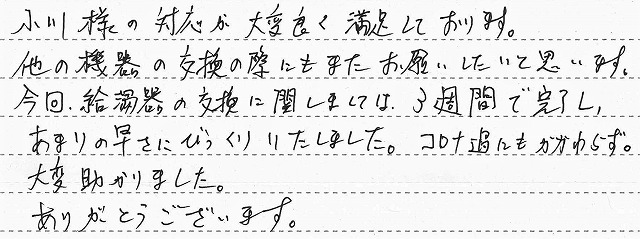 小川様の対応が大変良く満足しております。
他の機器の交換の際にもまたお願いしたいと思います。
今回、給湯器の交換に関しましては、3週間で完了し、
あまりの早さにびっくりいたしました。コロナ過にもかかわらず。
大変助かりました。
ありがとうございます。